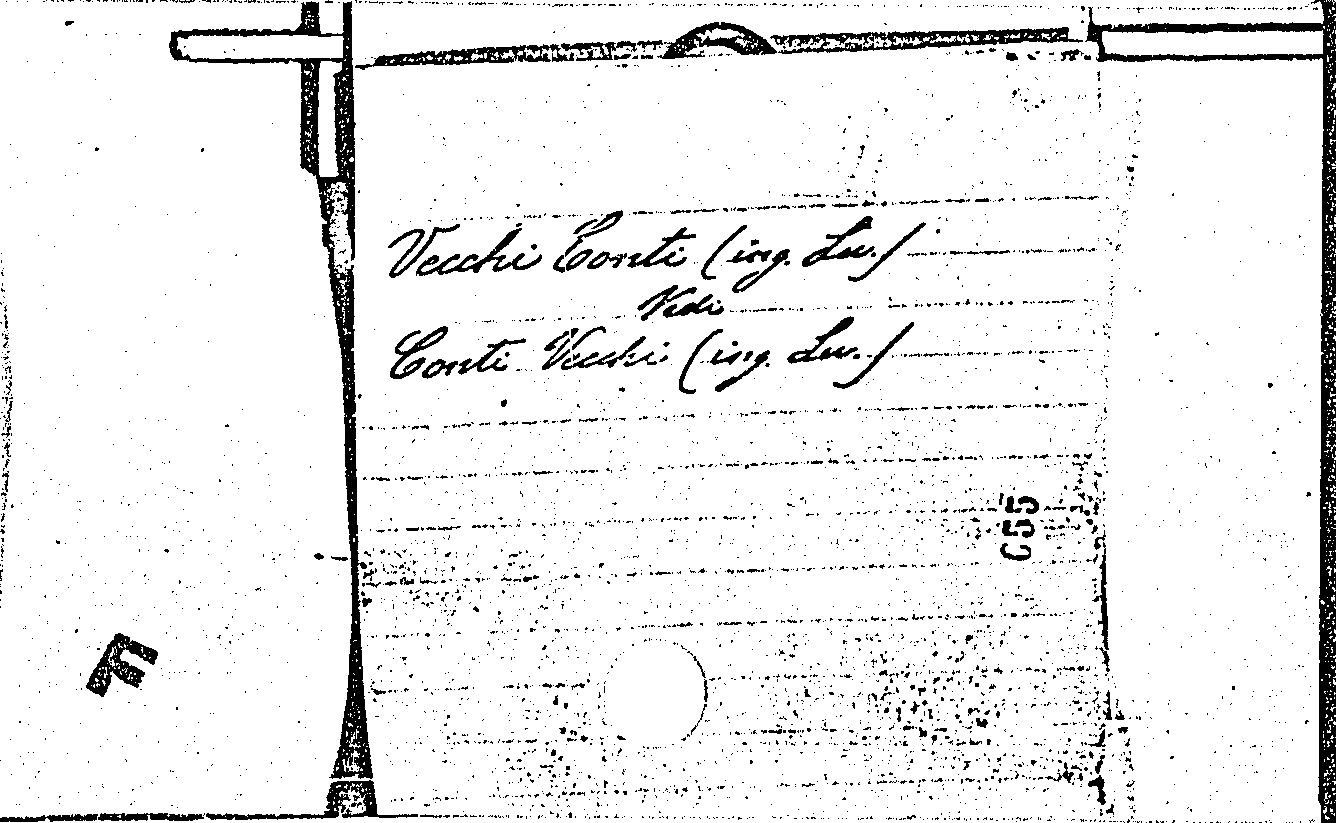 Vecchi Conti (ing. Lu.)
Vedi
Conti Vecchi (ing. Lu.)
055
F